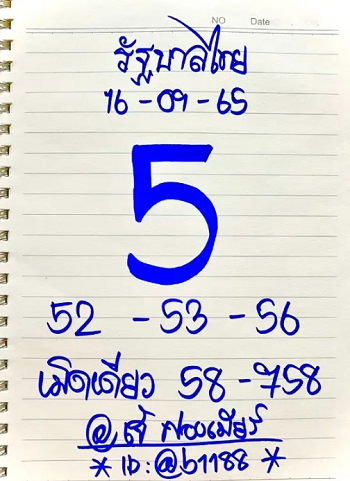 NO Date
รัฐบาลไทย
16-09-65
5
52 - 53 - 56
เม็ดเดียว 58-758
@ เจ๊ฟองเบียร์
* ID: @b1188 *